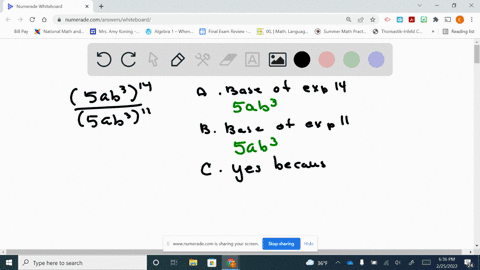 Numerade Whiteboard
numerade.com/answers/whiteboard/
Bill Pay
National Math and...
Mrs. Amy Koning -...
Algebra 1 - When...
Final Exam Review -...
IXL | Math, Languag...
Summer Math Practi...
Reading list
(5ab³)¹⁴
(5ab³)¹¹
A. Base of exp 14
5ab³
B. Base of exp 11
5ab³
C. yes becaus
www.numerade.com is sharing your screen.
Stop sharing
Hide
Type here to search
36°F
6:36 PM
2/25/2022